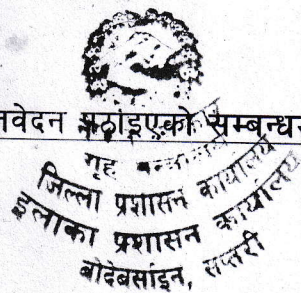 निवेदन पठाइएको सम्बन्धमा
गृह
जिल्ला प्रशासन कार्यालय
इलाका प्रशासन कार्यालय
बोदेबर्साइन, सप्तरी